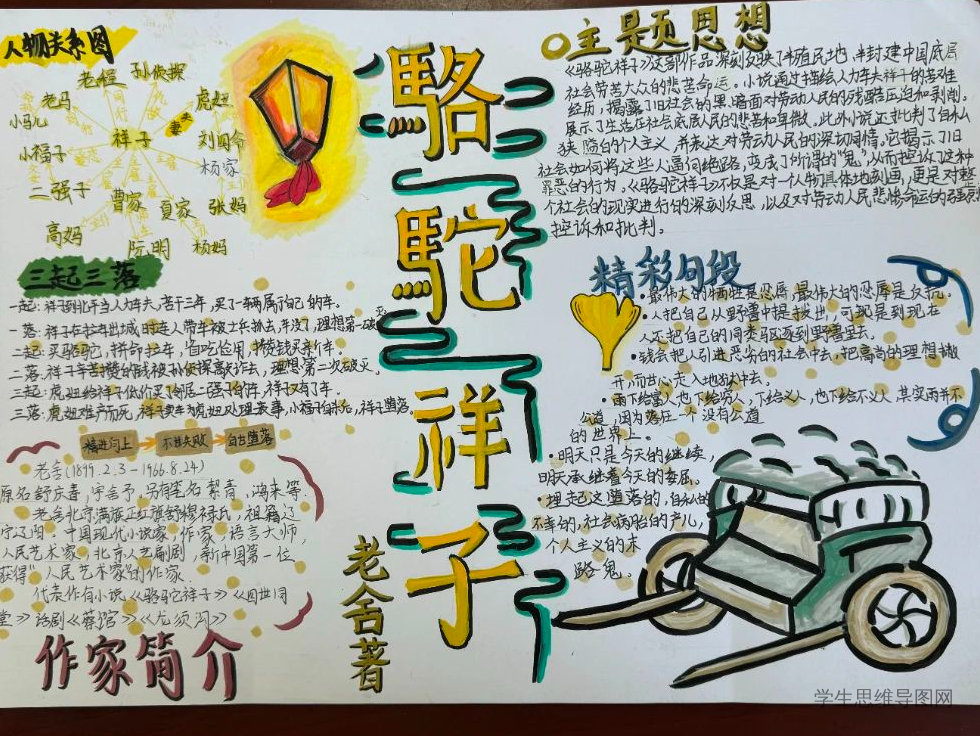 人物关系图
老栓 孙侦探
老马 虎妞
小马儿 祥子 夫妻 刘四爷
小福子 杨家
二强子 曹家 夏家 张妈
高妈 阮明 杨妈
三起三落
一起:祥子到北平当人力车夫,苦干三年,买了一辆属于自己的车。
一落:祥子在 出城时连人带车被士兵抓去,车没了,理想第一破灭
二起:卖骆驼,拼命拉车,省吃俭用,攒钱买新车。
二落:祥子辛苦攒的钱被孙侦探 诈去,理想第二次破灭。
三起:虎妞给祥子低价买了邻居二强子的车,祥子又有了车。
三落:虎妞难产而死,祥子卖车为虎妞处理丧事,小福子 死,祥子堕落。
精进向上 不甘失败 自甘堕落
老舍(1899.2.3-1966.8.24)
原名舒庆春,字舍予,另有笔名絜青、鸿来等.
老舍北京满族正红旗舒穆禄氏,祖籍辽
宁辽阳.中国现代小说家,作家,语言大师,
人民艺术家,北京人艺 剧,新中国第一位
获得"人民艺术家"的作家.
代表作有小说《骆驼祥子》《四世同
堂》话剧《茶馆》《龙须沟》
作家简介
駱
駝
祥
子
老舍著
主题思想
《骆驼祥子》这部作品深刻反映了半殖民地、半封建中国底层
社会劳苦大众的悲苦命运。小说通过描绘人力车夫祥子的苦难
经历,揭露了旧社会的黑暗面对劳动人民的残酷压迫和剥削。
展示了生活在社会底层人民的悲苦和卑微。此外小说还批判了自私
狭隘的个人主义,并表达对劳动人民的深切同情。它揭示了旧
社会如何将这些人逼向绝路,变成了所谓的"鬼",从而控诉了这种
罪恶的行为。《骆驼祥子》不仅是对一个人物具体地刻画,更是对整
个社会的现实进行的深刻反思,以及对劳动人民悲惨命运的强烈
控诉和批判。
精彩句段
•最伟大的牺牲是忍辱,最伟大的忍辱是反抗.
•人把自己从野兽中提拔出,可现是到现在
人还把自己的同类驱逐到野兽里去。
•钱会把人引进恶劣的社会中去,把高尚的理想撇
开,而甘心走入地狱中去。
•雨下给富人也下给穷人,下给义人,也下给不义人 其实雨并不
公道,因为落在一个没有公道
的世界上。
•明天只是今天的继续,
明天承继着今天的委屈。
•埋起这堕落的,自私的
不幸的,社会病胎的产儿,
个人主义的末
路鬼。
学生思维导图网